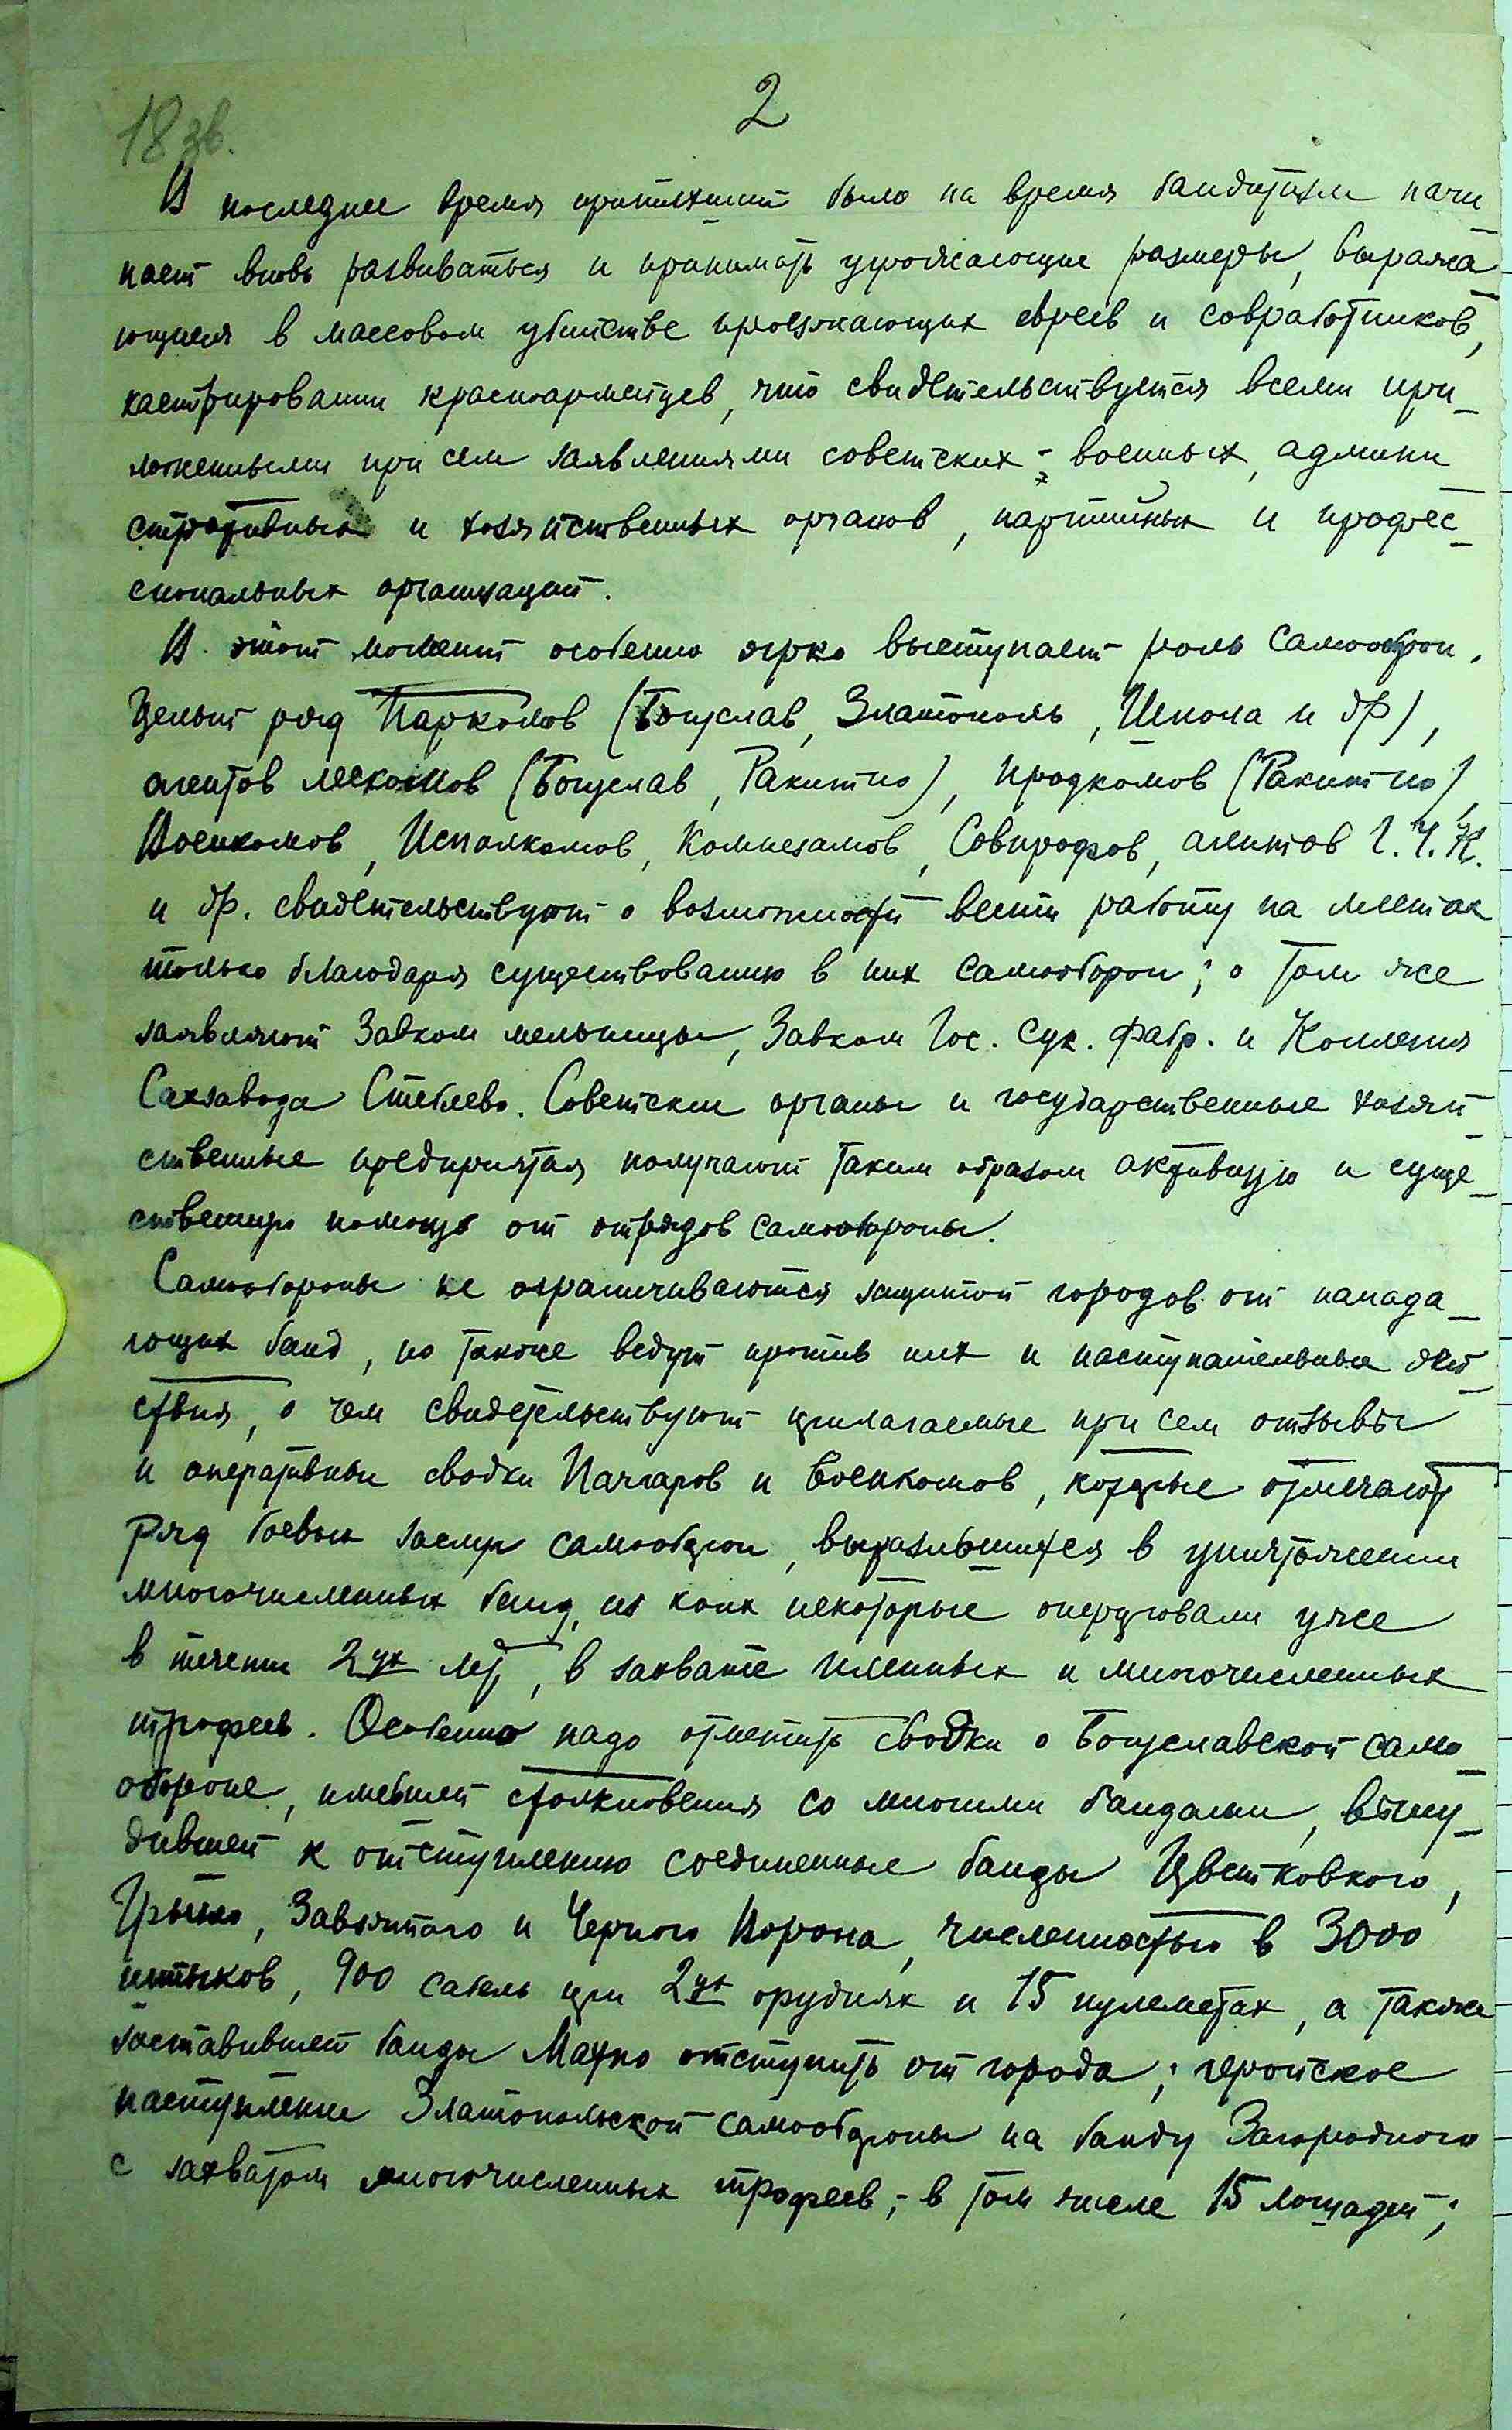 2
18 зв.
В последнее время притихший было на время бандитизм начи
нает вновь развиваться и принимать угрожающие размеры, выража
ющиеся в массовом убийстве проезжающих евреев и совработников,
кастрировании красноармейцев, что свидетельствуется всеми при
ложенными при сем заявлениями советских - военных, админи
стративных и хозяйственных органов, партийных и профес
сиональных организаций.
В этот момент особенно ярко выступает роль самооборон.
Целый ряд Парткомов (Богуслав, Златополь, Шпола и др),
агентов лескомов (Богуслав, Ракитно), продкомов (Ракитно),
Военкомов, Исполкомов, Комнезамов, Совпрофов, агентов Г.Ч.К.
и др. свидетельствуют о возможности вести работу на местах
только благодаря существованию в них самооборон; о том же
заявляют Завком мельницы, Завком Гос. Сук. фабр. и Коллегия
Сахзавода Стеблево. Советские органы и государственные хозяй
ственные предприятия получают таким образом активную и суще
ственную помощь от отрядов самообороны.
Самообороны не ограничиваются защитой городов от напада
ющих банд, но также ведут против них и наступательные дей
ствия, о чем свидетельствуют прилагаемые при сем отзывы
и оперативные сводки Начгаров и Военкомов, которые отмечают
ряд боевых заслуг самооборон, выразившихся в уничтожении
многочисленных банд, из коих некоторые оперировали уже
в течении 2ух лет, в захвате пленных и многочисленных
трофеев. Особенно надо отметить сводки о Богуславской само
обороне, имевшей столкновения со многими бандами, выну
дившей к отступлению соединенные банды Цветковкого,
Грызло, Завзятого и Черного Ворона, численностью в 3000
штыков, 900 сабель при 2ух орудиях и 15 пулеметах, а также
заставившей банды Махно отступить от города; геройское
наступление Златопольской самообороны на банду Загородного
с захватом многочисленных трофеев, - в том числе 15 лошадей;